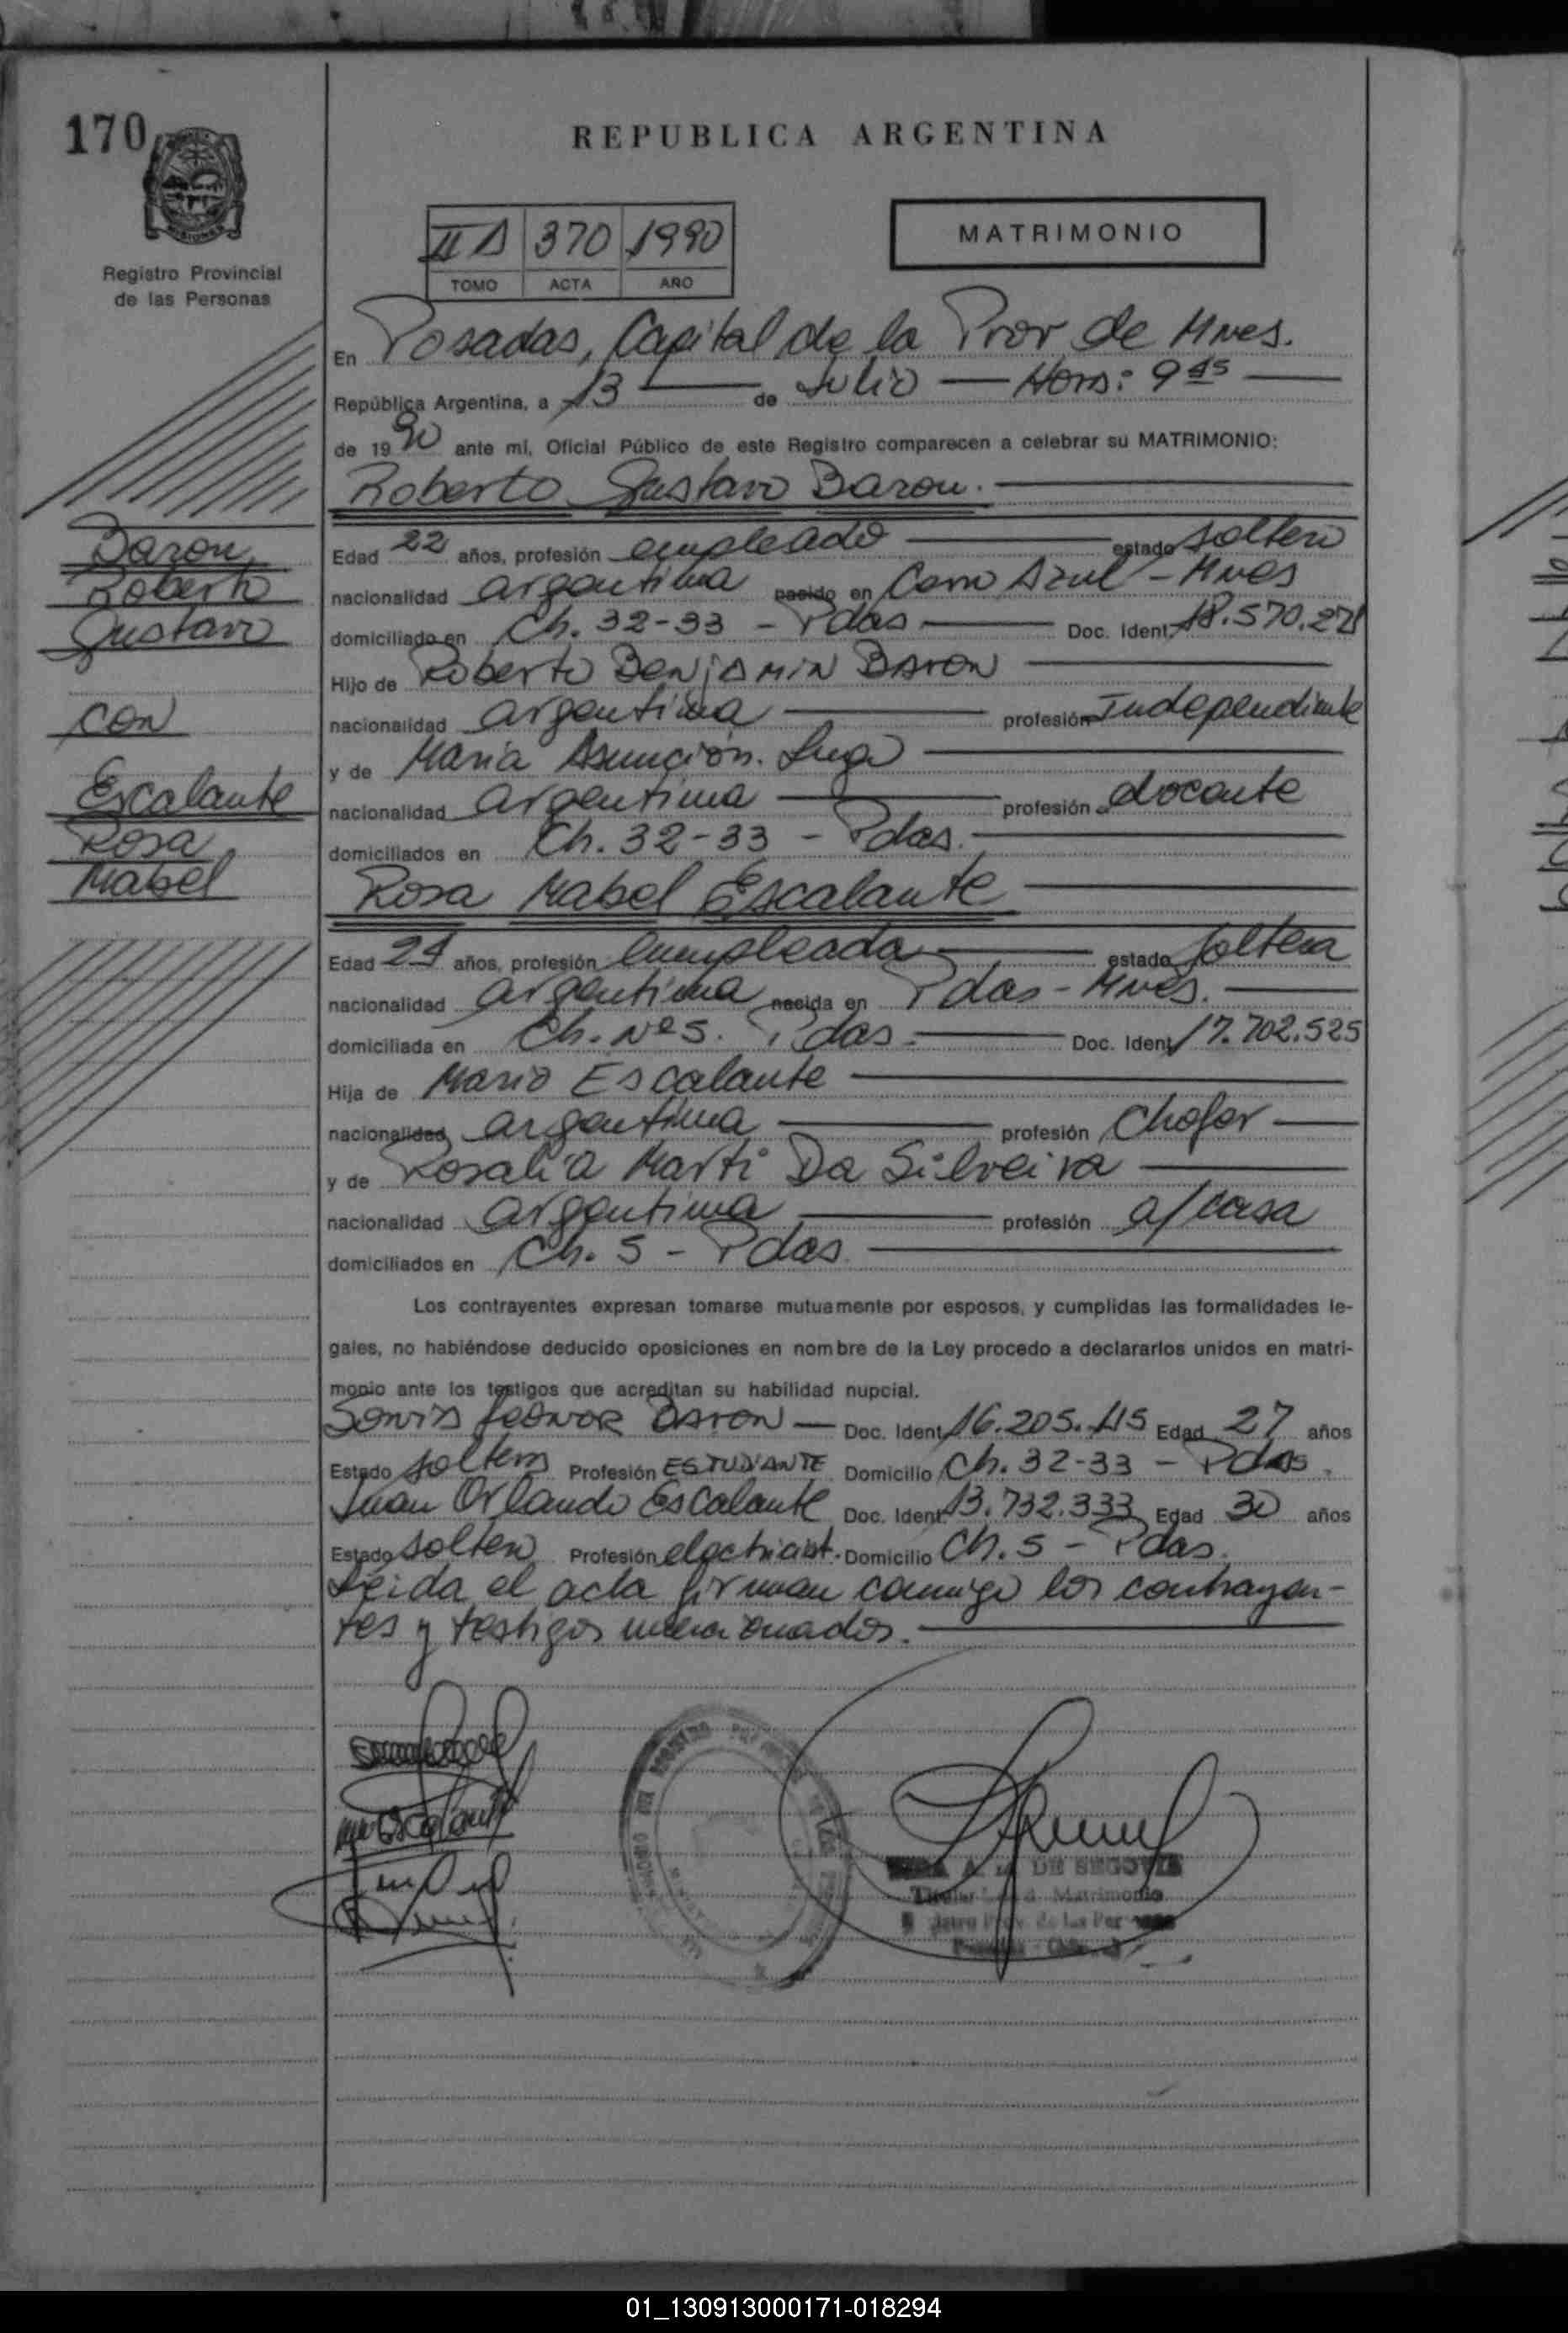 170
REPUBLICA ARGENTINA
MISIONES
Registro Provincial
de las Personas
II A 370 1990
TOMO ACTA AÑO
MATRIMONIO
En Posadas, Capital de la Prov de Mnes.
República Argentina, a 13 de Julio Hora: 9 45
de 1990 ante mi, Oficial Público de este Registro comparecen a celebrar su MATRIMONIO:
Roberto Gustavo Baron.
Baron
Roberto
Gustavo
con
Escalante
Rosa
Mabel
Edad 22 años, profesión empleado estado soltero
nacionalidad argentina nacido en Cerro Azul - Mnes
domiciliado en Ch. 32-33 - Pdas Doc. Ident. 18.570.271
Hijo de Roberto Benjamin Baron
nacionalidad argentina profesión Independiente
y de Maria Asunción.
nacionalidad argentina profesión docente
domiciliados en Ch. 32-33 - Pdas.
Rosa Mabel Escalante
Edad 24 años, profesión empleada estado soltera
nacionalidad argentina nacida en Pdas - Mnes.
domiciliada en Ch. Nº 5. Pdas. Doc. Ident. 17.702.525
Hija de Mario Escalante
nacionalidad argentina profesión Chofer
y de Rosalia Marti Da Silveira
nacionalidad argentina profesión a/casa
domiciliados en Ch. 5 - Pdas.
Los contrayentes expresan tomarse mutuamente por esposos, y cumplidas las formalidades le-
gales, no habiéndose deducido oposiciones en nombre de la Ley procedo a declararlos unidos en matri-
monio ante los testigos que acreditan su habilidad nupcial.
Sonia Leonor Baron Doc. Ident. 16.205.415 Edad 27 años
Estado soltera Profesión ESTUDIANTE Domicilio Ch. 32-33 - Pdas.
Juan Orlando Escalante Doc. Ident. 13.732.333 Edad 30 años
Estado soltero Profesión electricist. Domicilio Ch. 5 - Pdas.
Leida el acta firman conmigo los contrayen-
tes y testigos mencionados.
A. M. DE SEGOVIA
Titular Matrimonio
01_130913000171-018294